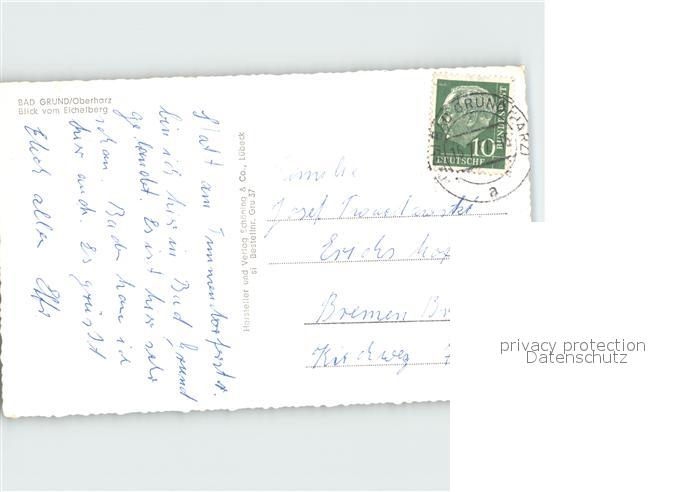 BAD GRUND/Oberharz
Blick vom Eichelberg
Statt am Timmendorferstr.
bin ich hier in Bad Grund
gelandet. Es ist hier sehr
schön. Baden kann ich
hier auch. Es grüsst
Euch allen
Hersteller und Verlag Schöning & Co., Lübeck
Bestellnr. Gru 37
BAD GRUND (HARZ)
a
10
DEUTSCHE
BUNDESPOST
Familie
Josef
Bremen
Kirchweg
privacy protection
Datenschutz